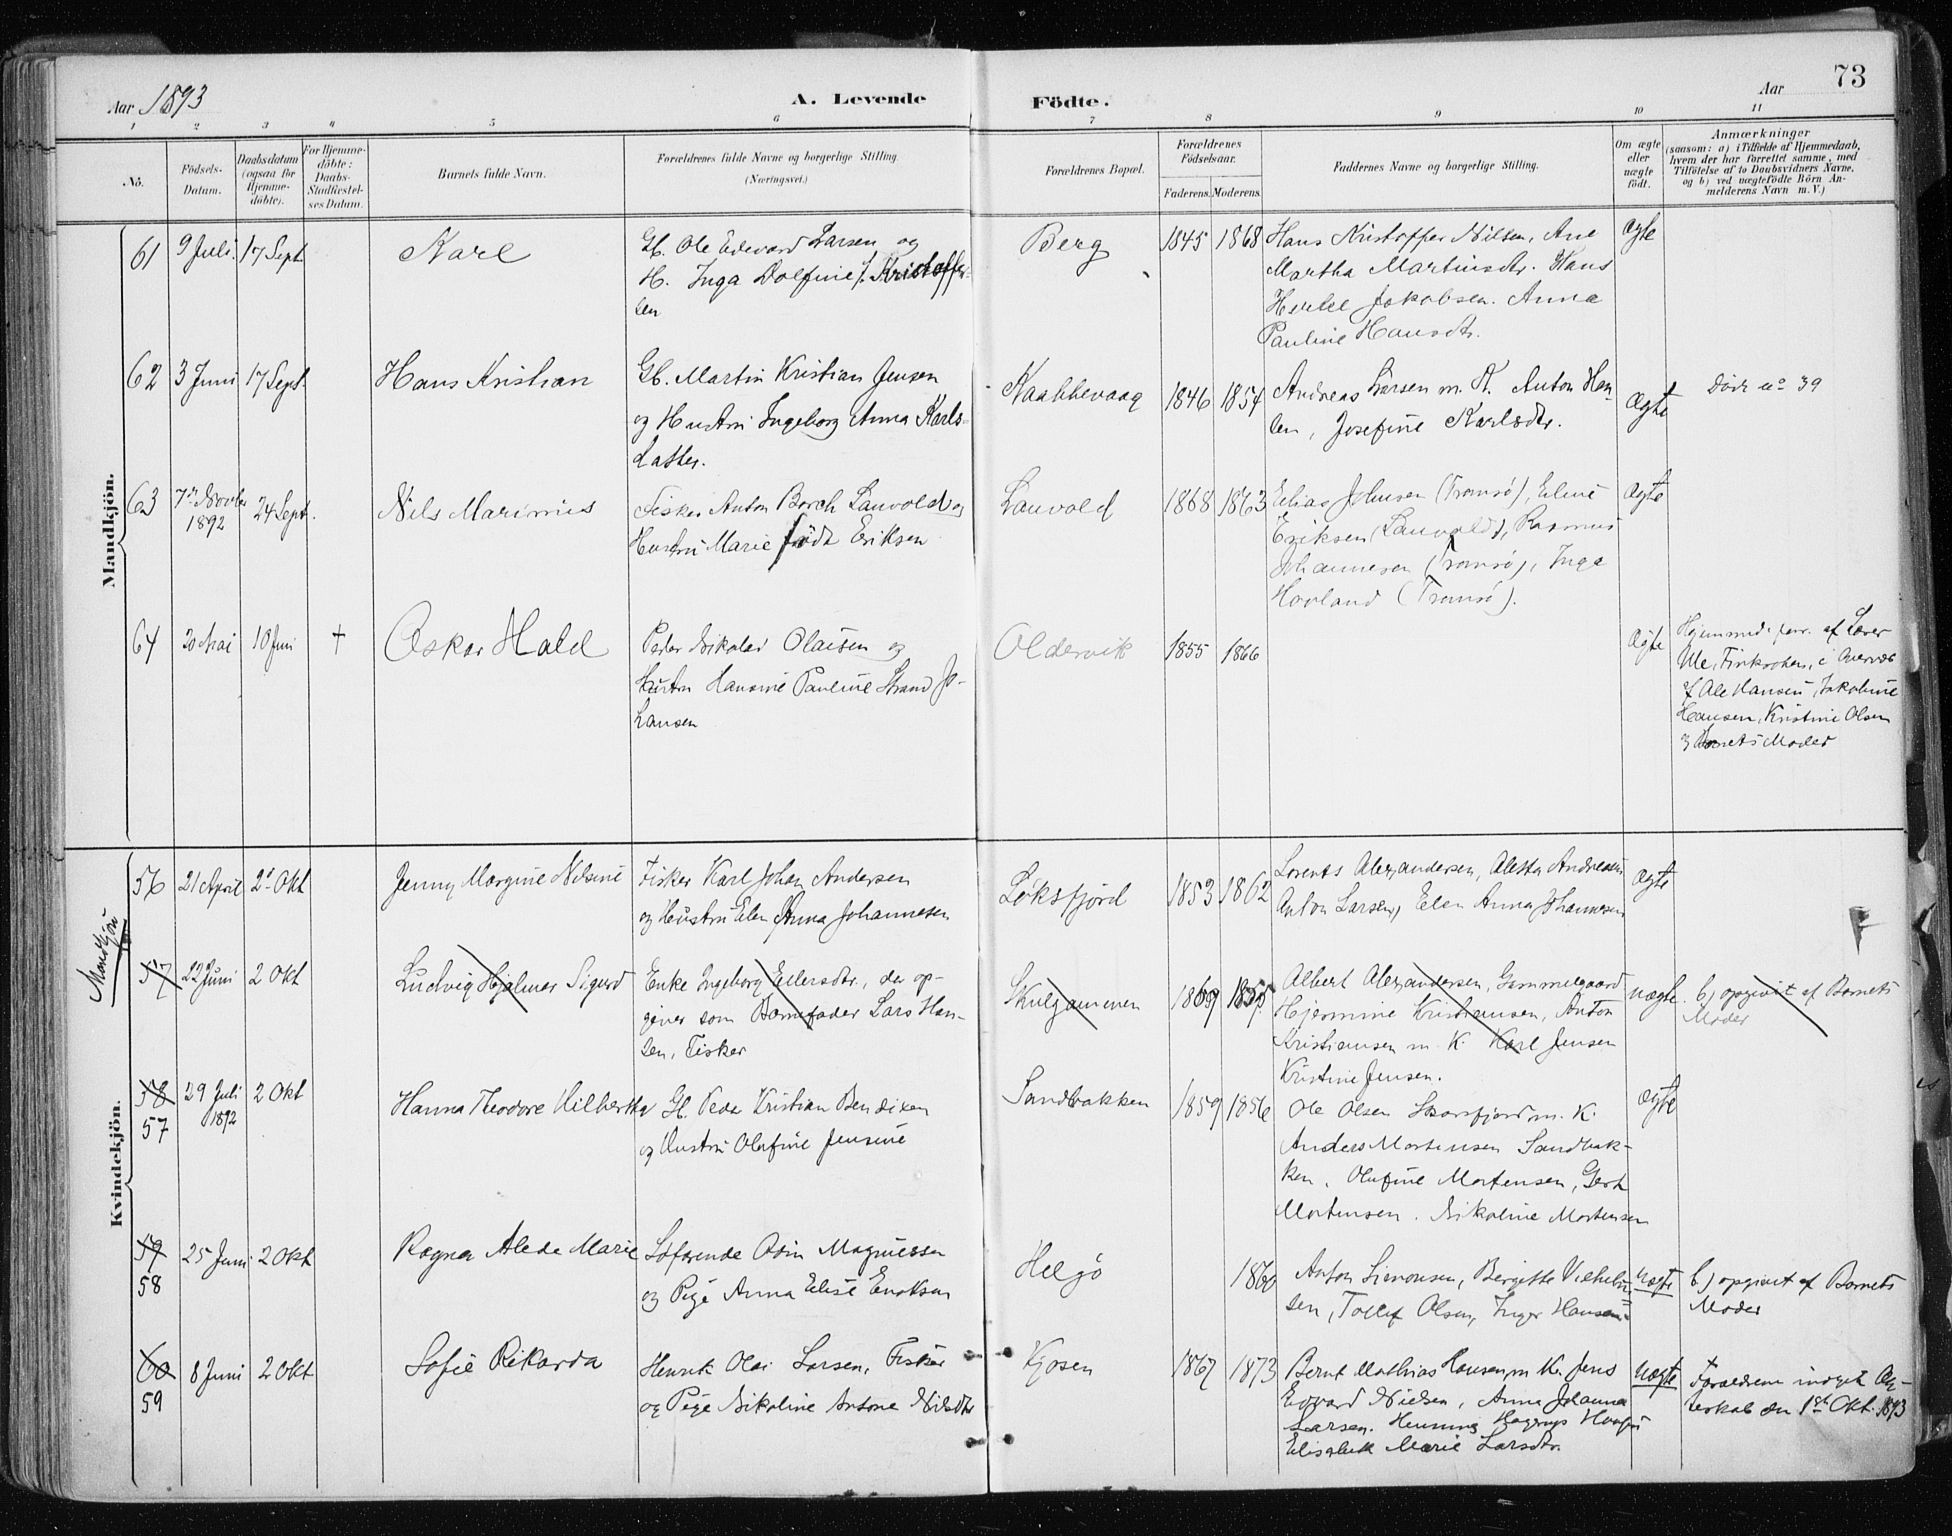 Aar 1893
A. Levende
Födte.
Aar
73
1 2 3 4 5 6 7 8 9 10 11
No.
Födsels-Datum.
Daabsdatum (ogsaa for Hjemme-döbte).
For Hjemme-döbte: Daabs-Stadfæstel-ses Datum.
Barnets fulde Navn.
Forældrenes fulde Navne og borgerlige Stilling. (Næringsvei.)
Forældrenes Bopæl.
Forældrenes Födselsaar.
Faderens. Moderens.
Faddernes Navne og borgerlige Stilling.
Om ægte eller uægte födt.
Anmærkninger (saasom: a) i Tilfælde af Hjemmedaab, hvem der har forrettet samme, med Tilföielse af to Daabsvidners Navne, og b) ved uægtefödte Börn Anmelderens Navn m. V.)
Mandkjön.
61 9 Juli 17 Sept Karl
Gb. Ole Edevard Larsen og
H. Inga Dolfine f. Kristoffer-
sen
Berg 1845 1868
Hans Kristoffer Nilsen, Ane
Martha Martinsdtr. Hans
Hertel Jakobsen. Anna
Pauline Hansdtr.
Ægte
62 3 Juni 17 Sept. Hans Kristian
Gb. Martin Kristian Jensen
og Hustru Ingeborg Anna Karls-
datter.
Kaabbevaag 1846 1854
Andreas Larsen m. K. Anton Han-
sen, Josefine Karlsdtr.
Ægte
Död no 39
63 7de Novbr 1892 24 Sept. Nils Marinius
Fisker Anton Borch Lauvold og
Hustru Marie född Eriksen
Lauvold 1868 1863
Elias Johnsen (Tromsö), Eline
Eriksen (Lauvold), Rasmus
Johannesen (Tromsö), Inga
Hovland (Tromsö).
Ægte
64 20 Mai 10 Juni † Oskar Hald
Peder Nikolai Olaisen og
Hustru Hansine Pauline Strand Jo-
hansen
Oldervik 1855 1866
Ægte
Hjemmed. forr. af Lærer
Ole Finkroken, i Overvær
af Ole Hansen, Jakobine
Hansen, Kristine Olsen
og Barnets Moder
Kvindekjön.
56 21 April 2 Okt Jenny Margine Nilsine
Fisker Karl Johan Andersen
og Hustru Elen Anna Johannesen
Löksfjord 1853 1862
Lorents Alexandersen, Aletta Andresen
Anton Larsen, Elen Anna Johannesen
Ægte
Mandkjön
57 22 Juni 2 Okt Ludvig Hjalmar Sigurd
Enke Ingeborg Eilersdtr., der op-
giver som Barnefader Lars Han-
sen, Fisker
Skulgammen
Albert Alexandersen, Gammelgaard
Hjermine Kristiansen, Anton
Kristiansen m. K. Karl Jensen
Kristine Jensen.
Uægte.
b) opgivet af Barnets
Moder
58
57
29 Juli 1892 2 Okt Hanna Theodore Hilbertha
Gb. Peder Kristian Bendixen
og Hustru Olufine Jensine
Sandbakken 1859 1856
Ole Olsen Skarsfjord m. K.
Anders Mortensen Sandbak-
ken, Olufine Mortensen, Gert
Mortensen. Nikoline Mortensen
Ægte
59
58
25 Juni 2 Okt Ragna Alede Marie
Söfarende Odin Magnussen
og Pige Anna Elise Enoksen
Helgö 1860
Anton Simonsen, Bergitte Vilhelm-
sen, Tollef Olsen, Inger Hansen
Uægte
b) opgivet af Barnets
Moder
60
59
8 Juni 2 Okt Sofie Rikarda
Henrik Olai Larsen, Fisker
og Pige Nikoline Antone Nilsdtr
Kjosen 1867 1873
Bernt Mathias Hansen m K. Jens
Edvard Nielsen, Anna Johanna
Larsen. Henning Hagerup
Elisabeth Marie Larsdtr.
Uægte
Forældrene indgik Æg-
teskab den 1ste Okt. 1893